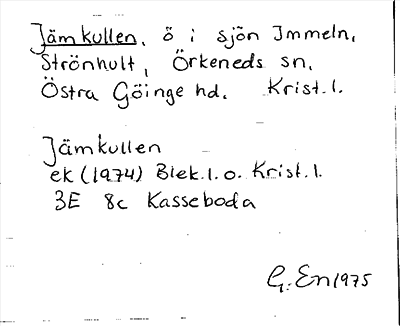 Jämkullen, ö i sjön Immeln,
Strönhult, Örkeneds sn,
Östra Göinge hd. Krist.l.
Jämkullen
ek (1974) Blek.l.o. Krist.l.
3E 8c Kasseboda
G. En 1975